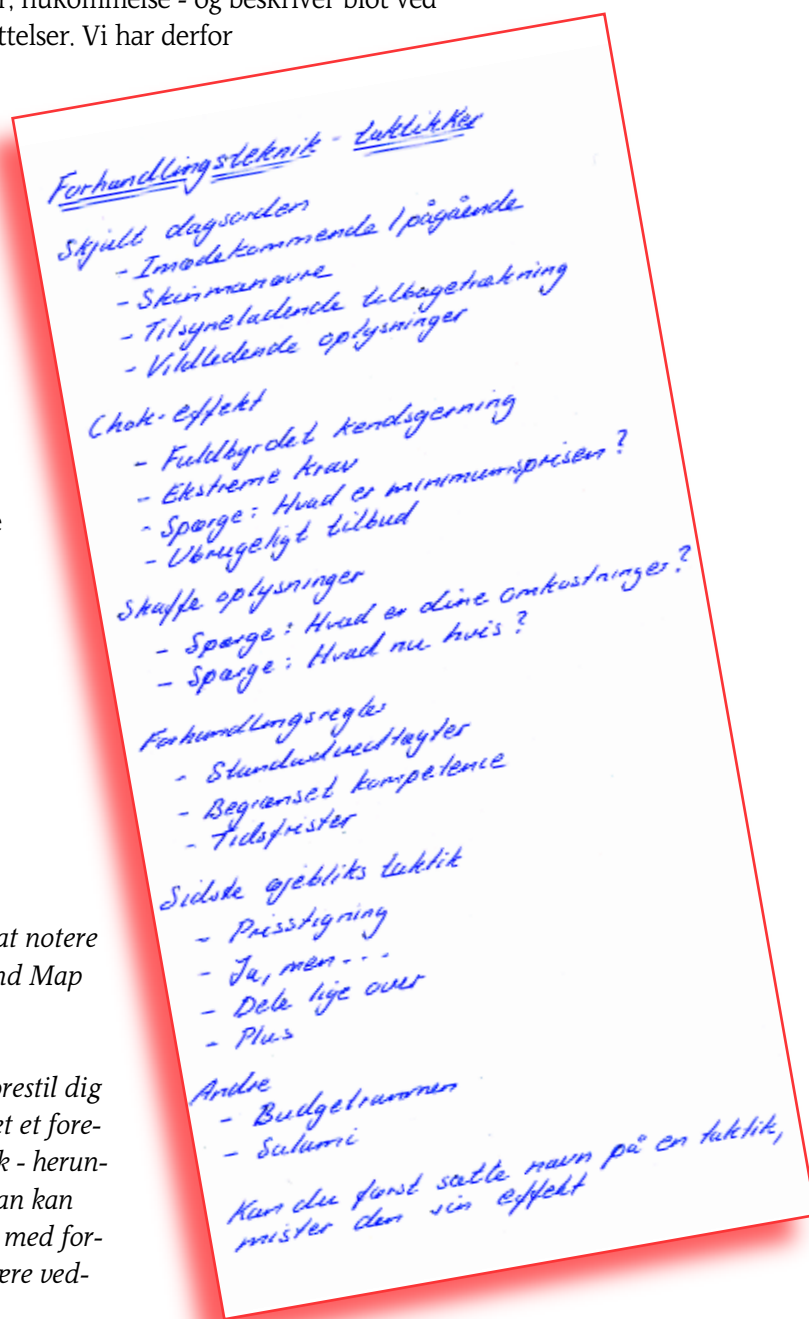 , hukommelse - og beskriver blot ved
ttelser. Vi har derfor
Forhandlingsteknik - taktikker
Skjult dagsorden
- Imødekommende / pågående
- Skinmanøvre
- Tilsyneladende tilbagetrækning
- Vildledende oplysninger
Chok-effekt
- Fuldbyrdet kendsgerning
- Ekstreme krav
- Spørge: Hvad er minimumsprisen?
- Ubrugeligt tilbud
Skaffe oplysninger
- Spørge: Hvad er dine omkostninger?
- Spørge: Hvad nu hvis?
Forhandlingsregler
- Standardvedtægter
- Begrænset kompetence
- Tidsfrister
Sidste øjebliks taktik
- Prisstigning
- Ja, men---
- Dele lige over
- Plus
Andre
- Budgetrammen
- Salami
Kan du først sætte navn på en taktik,
mister den sin effekt
e
at notere
nd Map
orestil dig
et et fore-
k - herun-
an kan
med for-
ere ved-